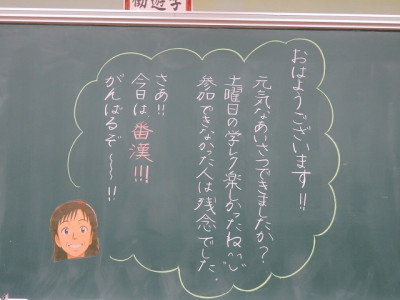 おはようございます!!
元気なあいさつできましたか?
土曜日の学レク楽しかったね〜
参加できなかった人は残念でした.
さあ!!
今日は、番漢!!!
がんばるぞ〜〜!!